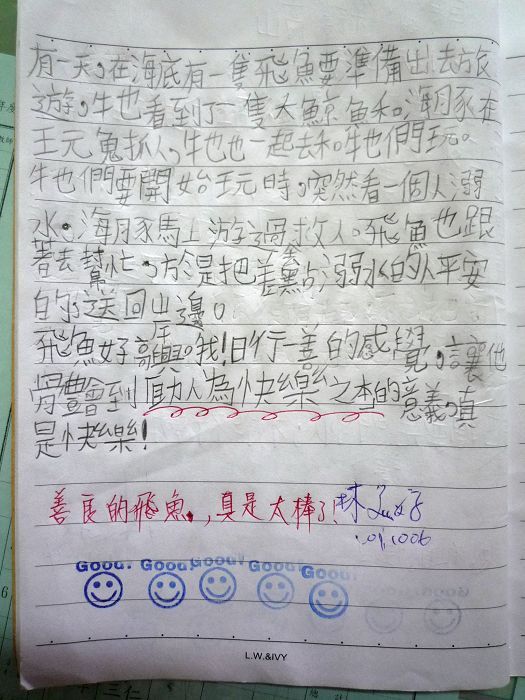 有一天,在海底有一隻飛魚要準備出去旅
遊,牠看到了一隻大鯨魚和海豚在
玩鬼抓人,牠也一起去和牠們玩。
牠們要開始玩時,突然看一個人溺
水,海豚馬上游過救人。飛魚也跟
著去幫忙,於是把差點溺水的人平安
的送回岸邊。
飛魚好高興哦!日行一善的感覺,讓他
體會到「助人為快樂之本」的意義,真
是快樂!
善良的飛魚,真是太棒了!
1006
Good! Good! Good! Good! Good!
L.W.&IVY